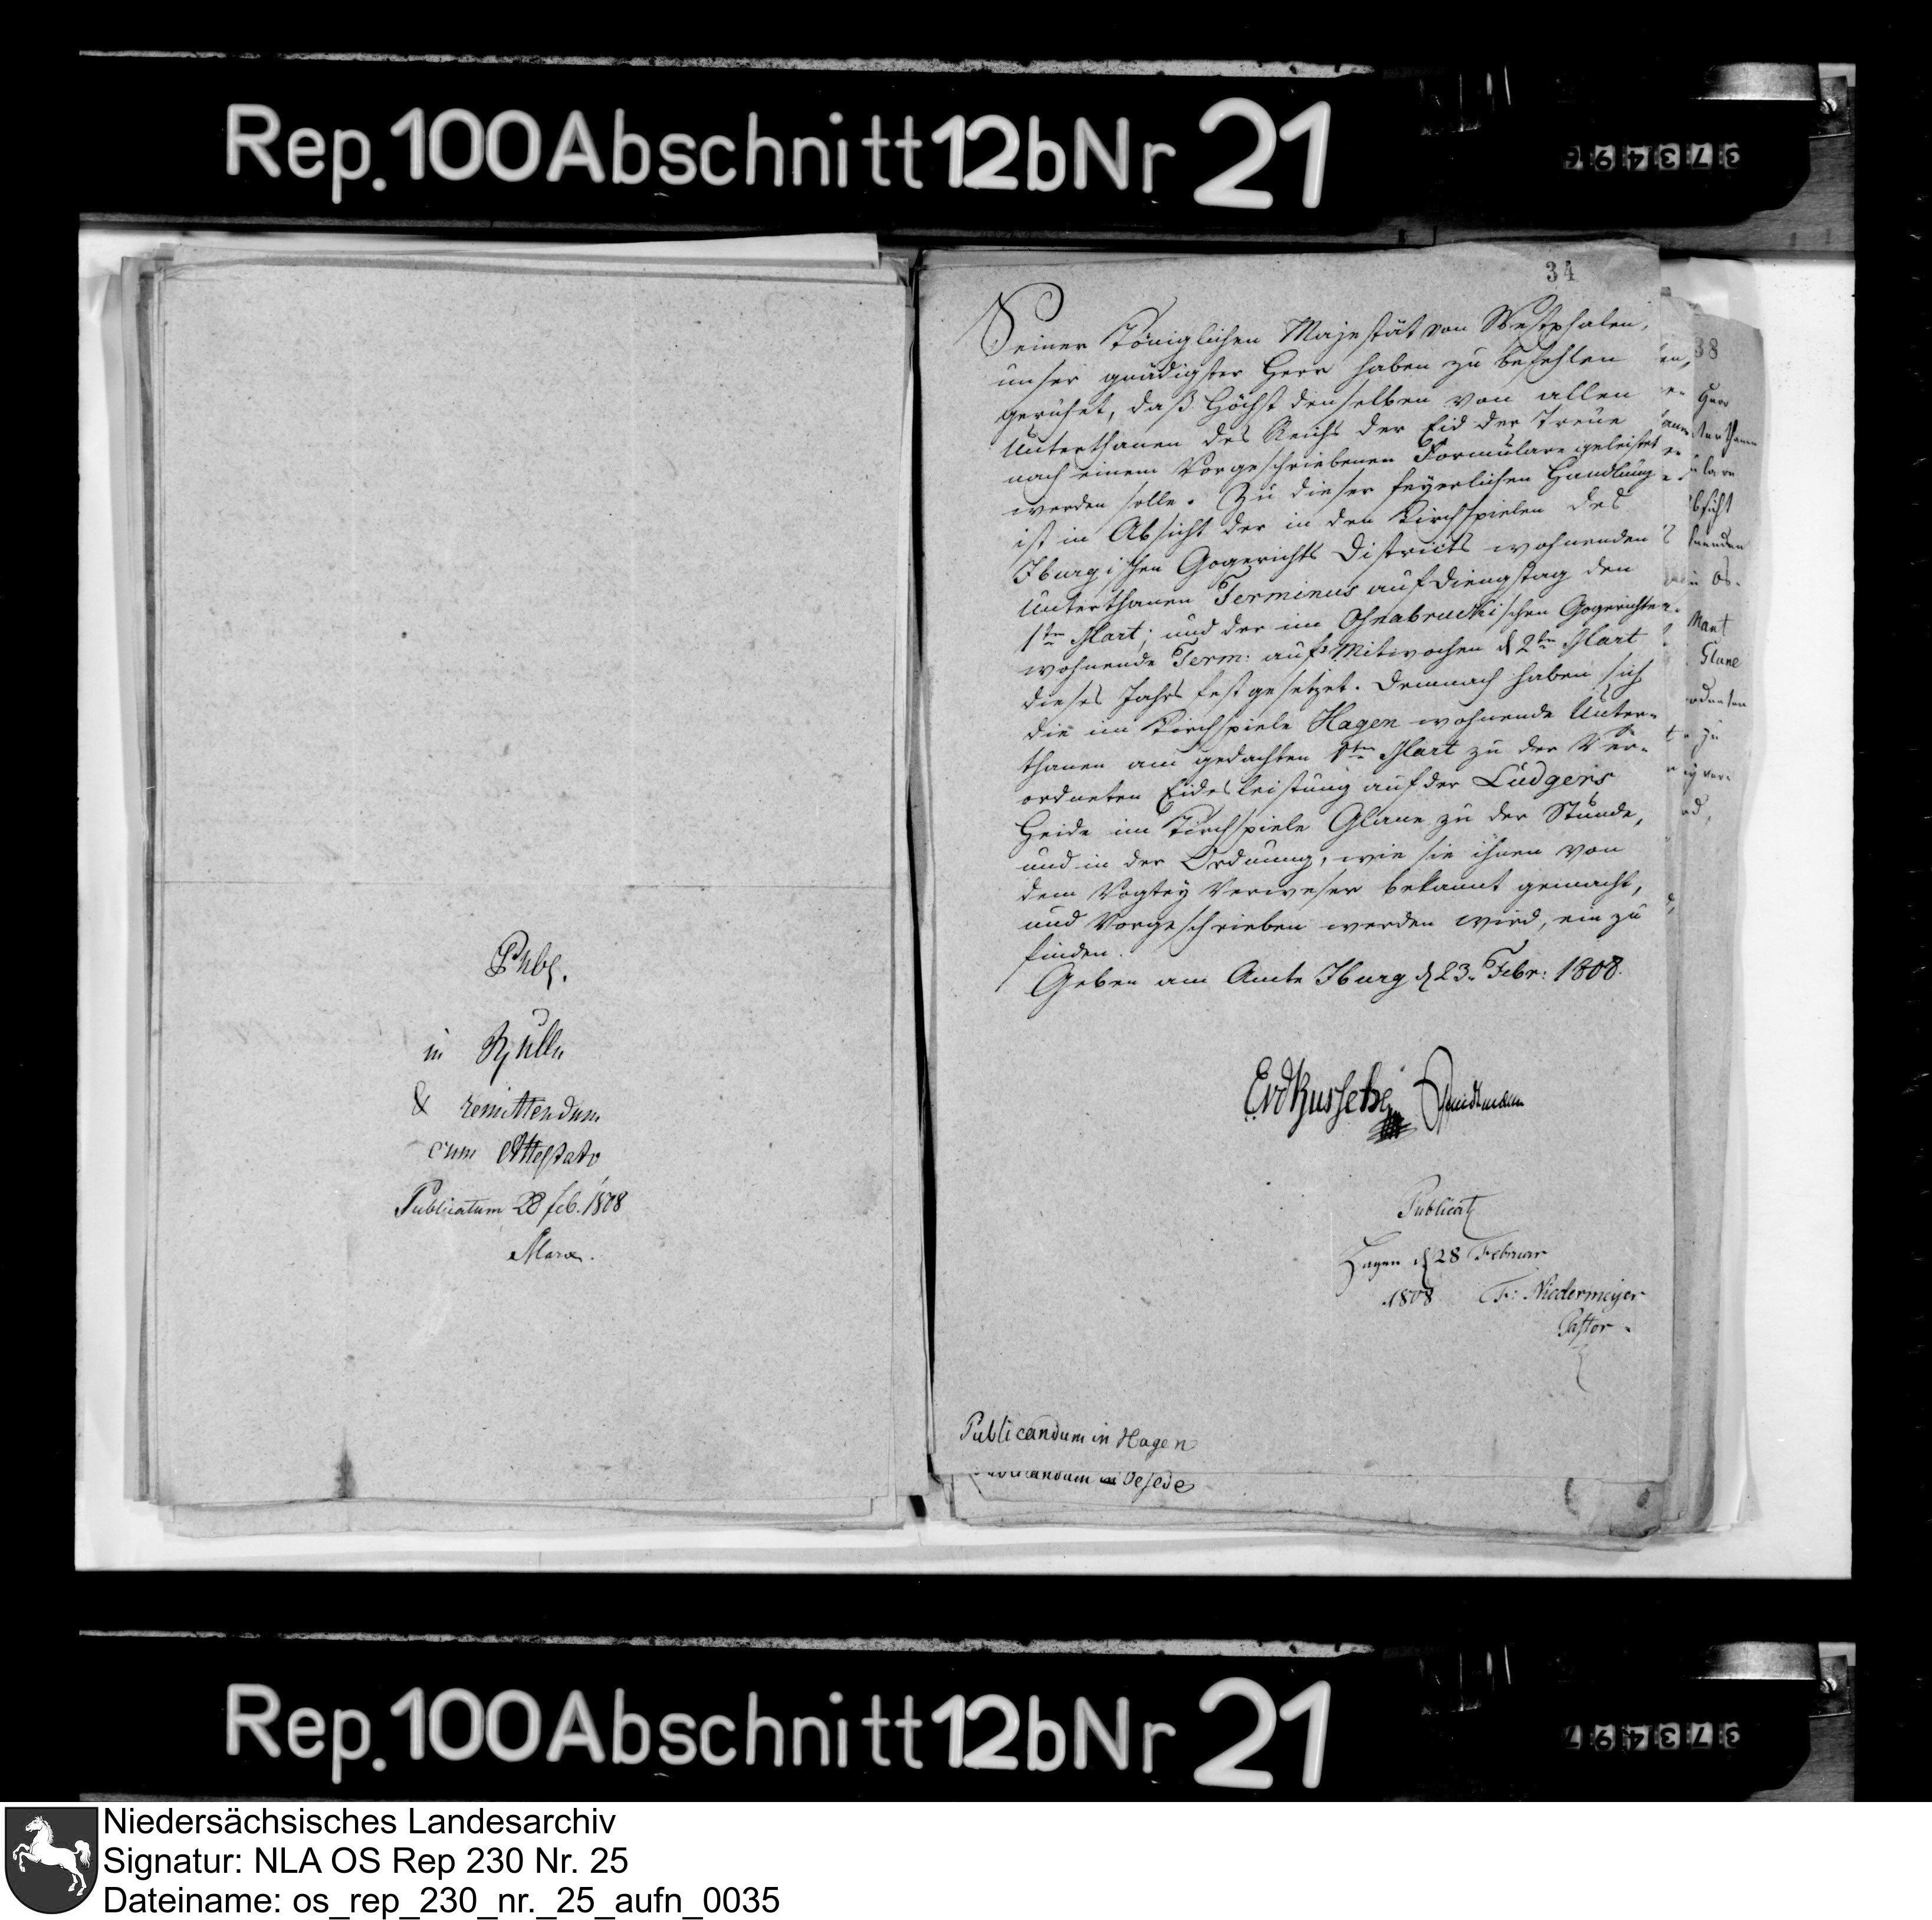 Rep. 100 Abschnitt 12b Nr 21
373496
Publ.
in Rulle
& remittendum
cum Attestato
Publicatum 28 feb. 1808
34
Seiner Königlichen Majestät von Westphalen,
unser gnädigster Herr haben zu befehlen
geruhet, daß Höchst denselben von allen
Unterthanen des Reichs der Eid der Treue
nach einem Vorgeschriebenen Formulare geleistet
werden solle. Zu dieser feyerlichen Handlung
ist in Absicht der in den Kirchspielen des
Iburgischen Gogerichts Districts wohnenden
Unterthanen Terminus auf Diengstag den
1ten Mart; und der im Osnabruckischen Gogerichte
wohnende Term: auf Mitwochen d 2ten Mart
dieses Jahrs fest gesetzet. Demnach haben sich
die im Kirchspiele Hagen wohnende Unter-
thanen am gedachten 1ten Mart zu der Ver-
ordneten Eidesleistung auf der Lüdgers
Heide im Kirchspiele Glane zu der Stunde,
und in der Ordnung, wie sie ihnen von
dem Vogtey Verweser bekannt gemacht,
und Vorgeschrieben werden wird, ein zu
finden.
Geben am Amte Iburg d 23. Febr: 1808.
Publicat
Hagen d 28 Februar
1808 F: Niedermeyer
Pastor
Publicandum in Hagen
Publicandum in Oesede
38
Rep. 100 Abschnitt 12b Nr 21
373497
Niedersächsisches Landesarchiv
Signatur: NLA OS Rep 230 Nr. 25
Dateiname: os_rep_230_nr._25_aufn_0035